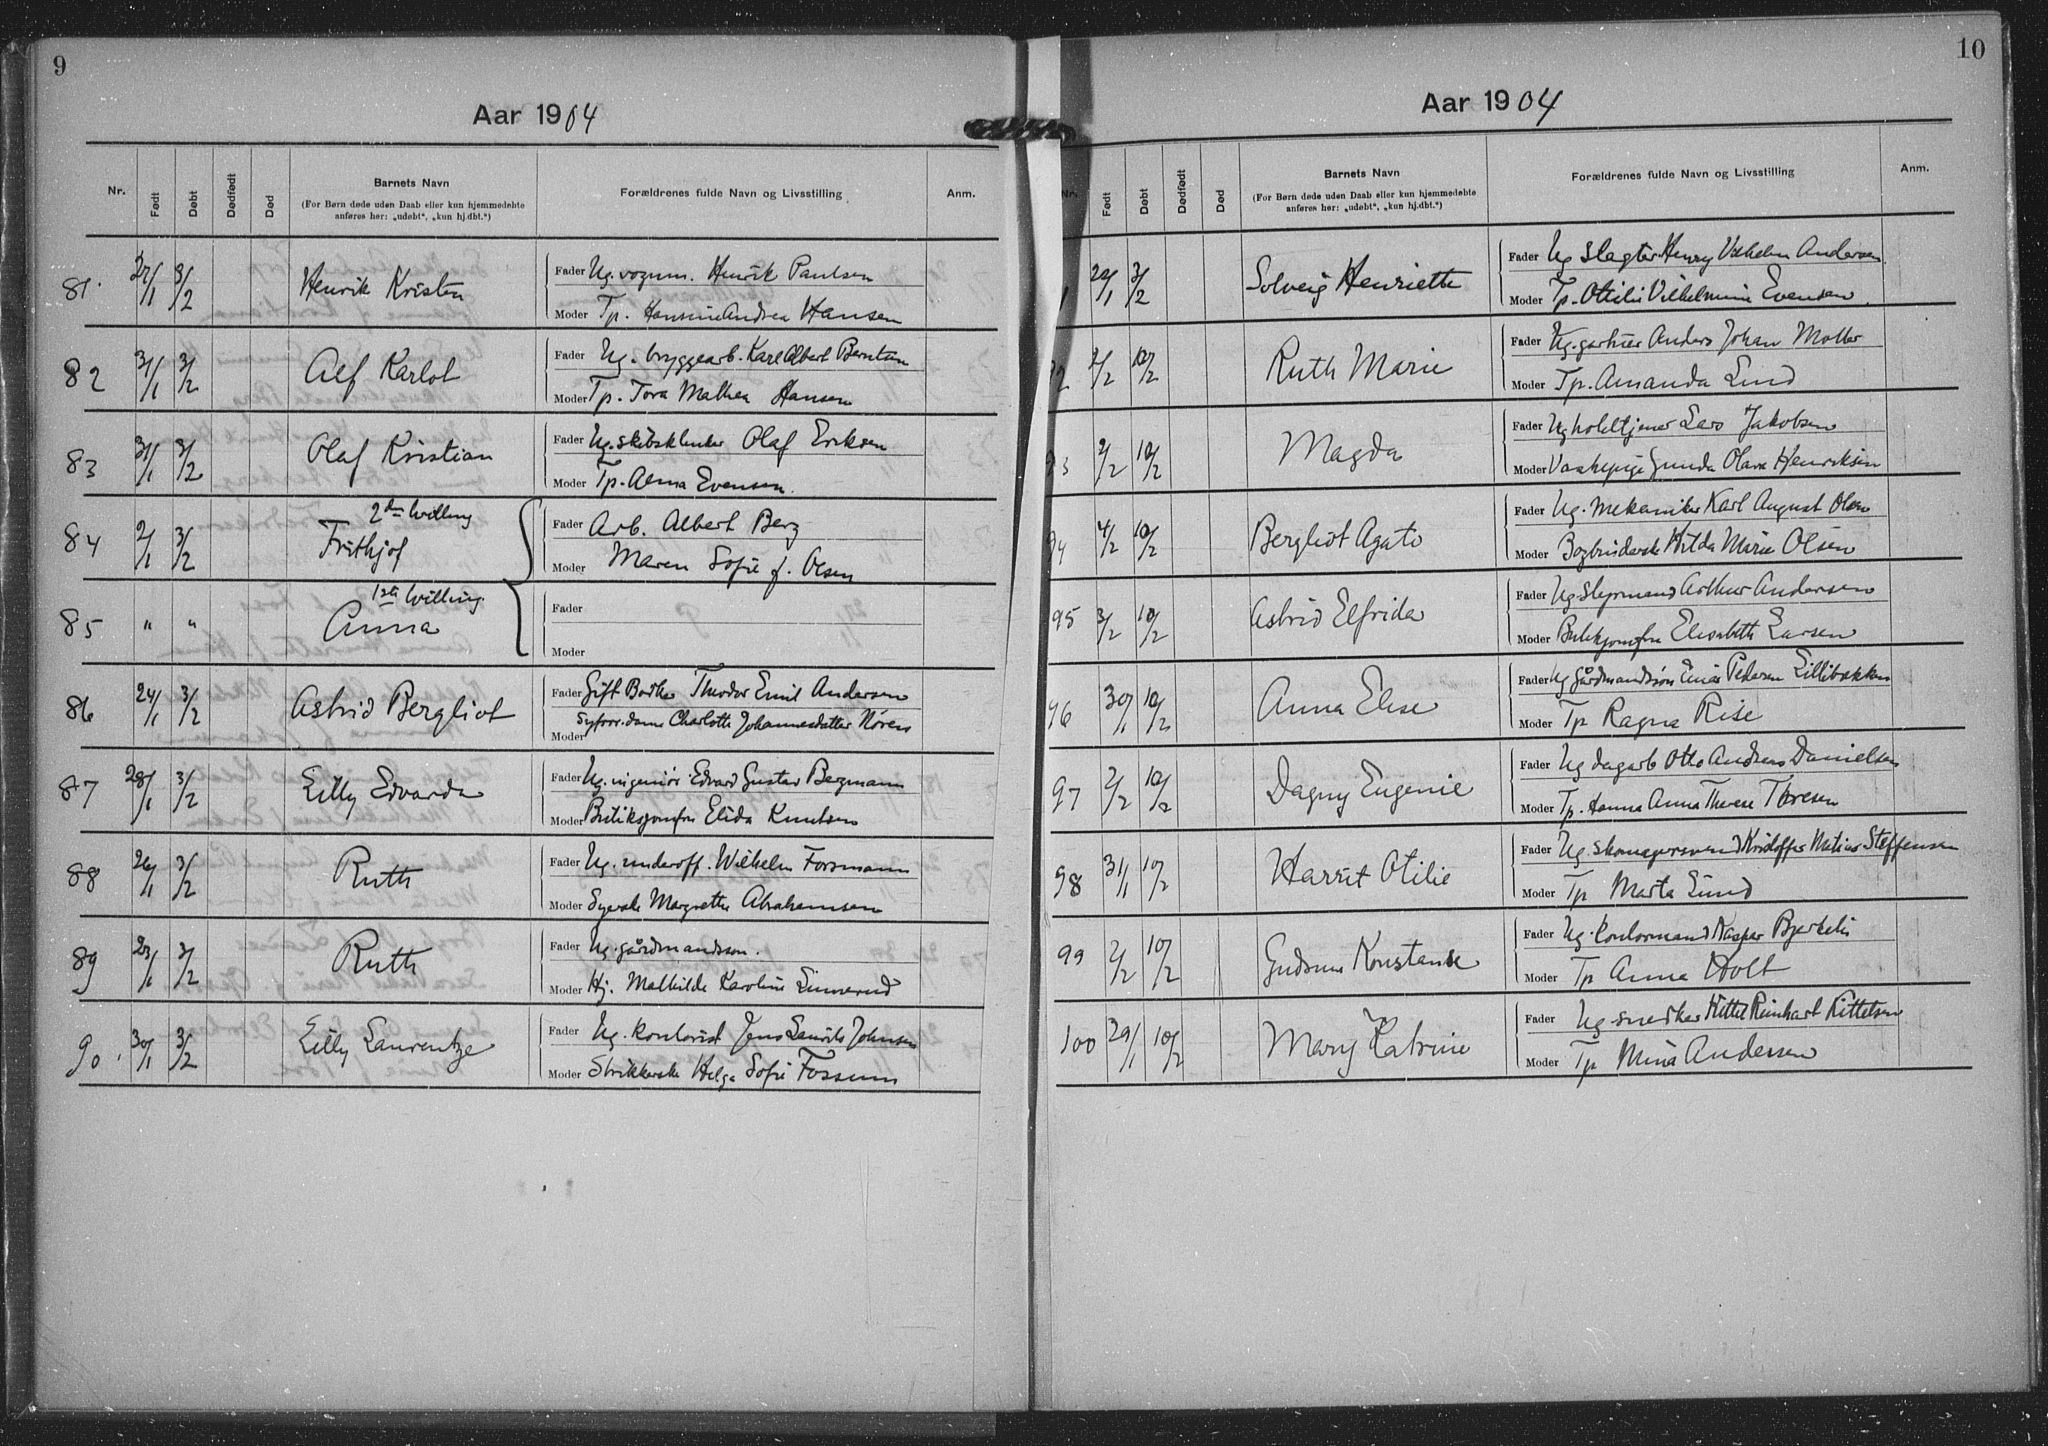 9
Aar 1904
Nr.
Født
Døbt
Dødfødt
Død
Barnets Navn
(For Børn døde uden Daab eller kun hjemmedøbte
anføres her: „udøbt“, „kun hj.dbt.“)
Forældrenes fulde Navn og Livsstilling
Anm.
81. 27/1 3/2 Henrik Kristen
Fader Ug. vognm. Henrik Paulsen
Moder Tp. Hansine Andrea Hansen
82 31/1 3/2 Alf Karlot
Fader Ug. bryggearb. Karl Albert Berntsen
Moder Tp. Tora Mathea Hansen
83 31/1 3/2 Olaf Kristian
Fader Ug. skibsklinker Olaf Eriksen
Moder Tp. Alma Evensen.
84 2/1 3/2 2den tvilling
Frithjof
Fader Arb. Albert Berg
Moder Maren Sofie f. Olsen
85 " " 1ste tvilling
Anna
Fader
Moder
86 24/1 3/2 Astrid Bergliot
Fader Gift Theodor Emil Andersen
Moder Charlotte Johannesdatter
87 28/1 3/2 Lilly Edvarda
Fader Ug. ingeniør Edvard Gustav Bergmann
Moder Butiksjomfru Elida Knutsen
88 26/1 3/2 Ruth
Fader Ug. underoff. Wilhelm Forsmann
Moder Syerske Margrethe Abrahamsen
89 23/1 3/2 Ruth
Fader Ug. gårdmandssøn.
Moder Hj. Mathilde Karoline
90. 30/1 3/2 Lilly Laurentze
Fader Ug. kontorist Jens Laurits Johnsen
Moder Strikkerske Helga Sofie Fossum
10
Aar 1904
Nr.
Født
Døbt
Dødfødt
Død
Barnets Navn
(For Børn døde uden Daab eller kun hjemmedøbte
anføres her: „udøbt“, „kun hj.dbt.“)
Forældrenes fulde Navn og Livsstilling
Anm.
1 29/1 3/2 Solveig Henriette
Fader Ug slagter Henry Vilhelm Andersen
Moder Tp. Otilie Vilhelmine Evensen.
2 2/2 10/2 Ruth Marie
Fader Ug. gartner Anders Johan Møller
Moder Tp. Amanda Lund
3 2/2 10/2 Magda
Fader Ug hoteltjener Lars Jakobsen
Moder Vaskepige Gunda Olava Henriksen
94 4/2 10/2 Bergliot Agato
Fader Ug. Mekaniker Karl August Olsen
Moder Bogbinderske Hilda Marie Olsen
95 3/2 10/2 Astrid Elfrida
Fader Ug. Styrmand Arthur Andersen
Moder Butikjomfru Elisabeth Larsen
96 30/1 10/2 Anna Elise
Fader Ug Gårdmandssøn Einar Pedersen Lillibakken
Moder Tp Ragna Rise
97 2/2 10/2 Dagny Eugenie
Fader Ug dagarb Otto Andreas Danielsen
Moder Tp. Hanna Anna Therese Thoresen
98 31/1 10/2 Harrit Otilie
Fader Ug. skomagersvend Kristoffer Matias Steffensen
Moder Tp Marta Lund
99 2/2 10/2 Gudrun Konstanse
Fader Ug. kontormand Kaspar Bjerkeli
Moder Tp Anna Holt
100 29/1 10/2 Mary Katrine
Fader Ug snedker Kittel Reinhart Kittelsen
Moder Tp Mina Andersen